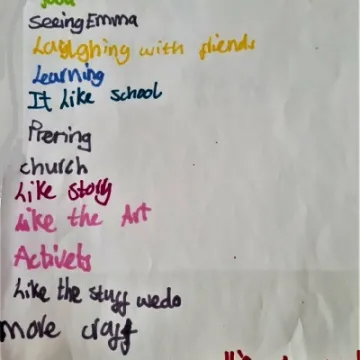 Seeing Emma
Laughing with friends
Learning
It Like school
Prering
church
Like story
Like the Art
Activets
Like the stuff wedo
more craft